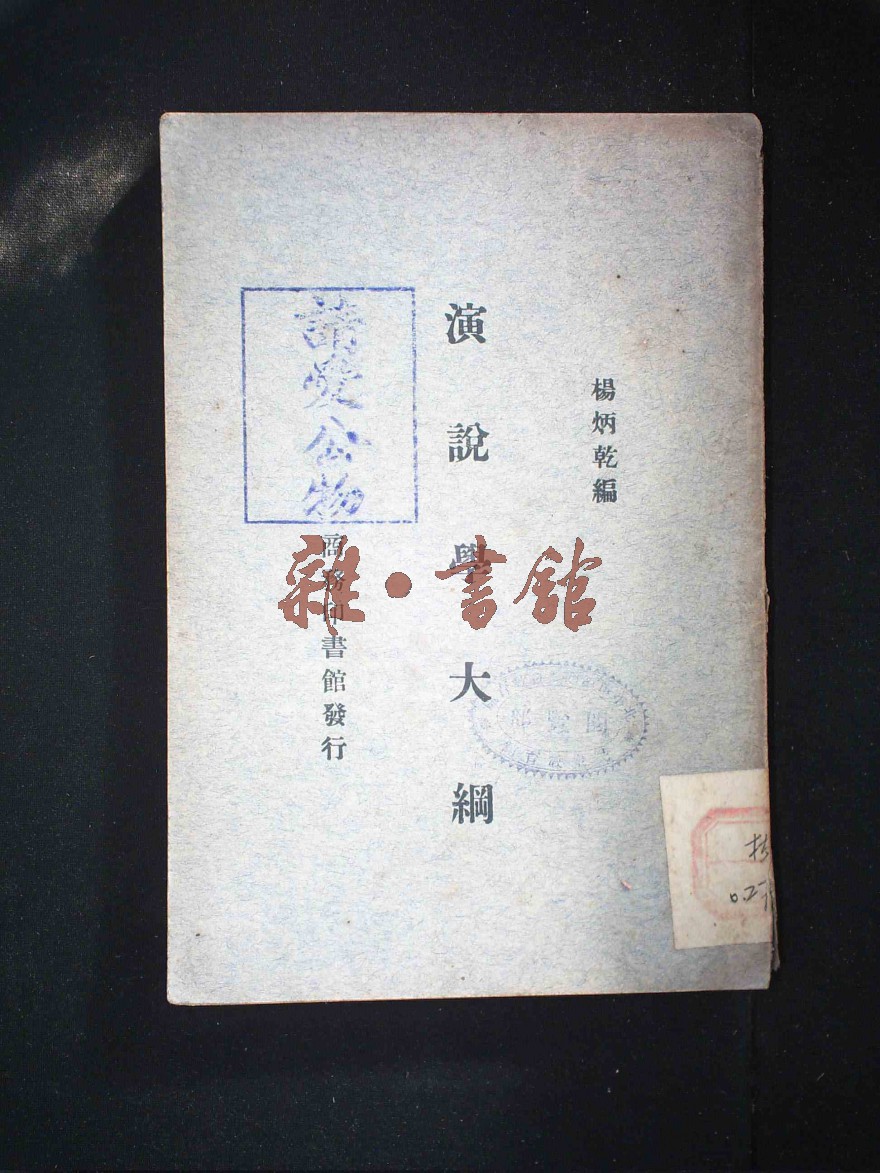 楊炳乾編
演說學大綱
商務印書館發行
請愛公物
雜·書館
閱覽部